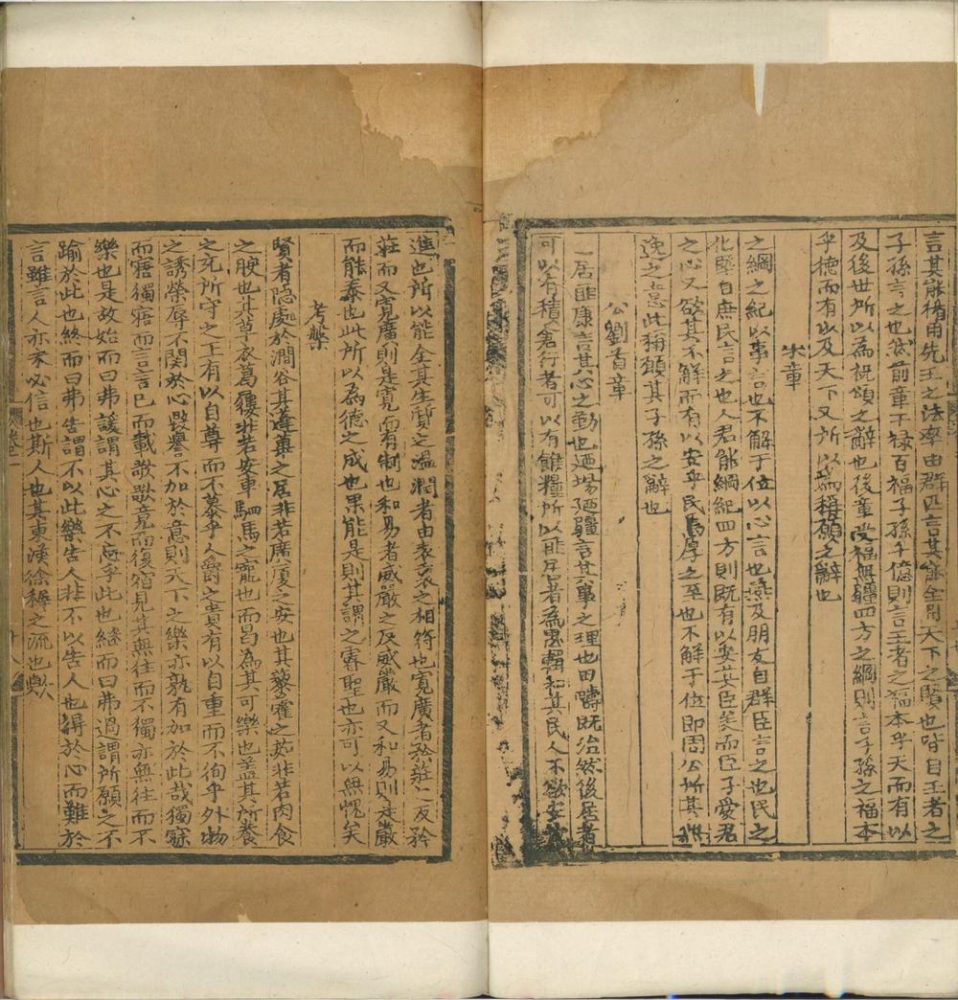 言其能循用先王之法率由群匹言其能全用天下之賢也皆自王者之
子孫言之也然前章干祿百福子孫千億則言王者之福本乎天而有以
及後世所以為祝頌之辭也後章受福無疆四方之綱則言子孫之福本
乎德而有以及天下又所以為稱願之辭也
末章
之綱之紀以事言也不解于位以心言也燕及朋友自群臣言之也民之
攸塈自庶民言之也人君能綱紀四方則既有以安其臣矣而臣子愛君
之心又欲其不解而有以安乎民焉厚之至也不解于位即周公所其無
逸之意此稱願其子孫之辭也
公劉首章
居匪康言其心之勤也迺場迺疆言其事之理也田疇既治然後居者
可以有積倉行者可以有餱糧所以
進也所以能全其生質之溫潤者由表裏之相符也寬廣者矜莊之反矜
莊而又寬廣則是寬而有制也和易者威嚴之反威嚴而又和易則是嚴
而能泰也此所以為德之成也果能是則其謂之睿聖也亦可以無愧矣
考槃
賢者隱處於澗谷其蓬蓽之居非若廣廈之安也其藜藿之茹非若肉食
之腴也其草衣葛屨非若安車駟馬之寵也而曷為其可樂也蓋其所養
之充所守之正有以自尊而不慕乎人爵之貴有以自重而不徇乎外物
之誘榮辱不関於心毀譽不加於意則天下之樂亦孰有加於此哉獨寐
而寤獨寤而言言已而歌歌竟而復宿見其無往而不獨亦無往而不
樂也是故始而曰弗諼謂其心之不忘乎此也繼而曰弗過謂所願之不
踰於此也終而曰弗告謂不以此樂告人非不以告人也得於心而難於
言雖言人亦未必信也斯人也其東漢徐穉之流也歟